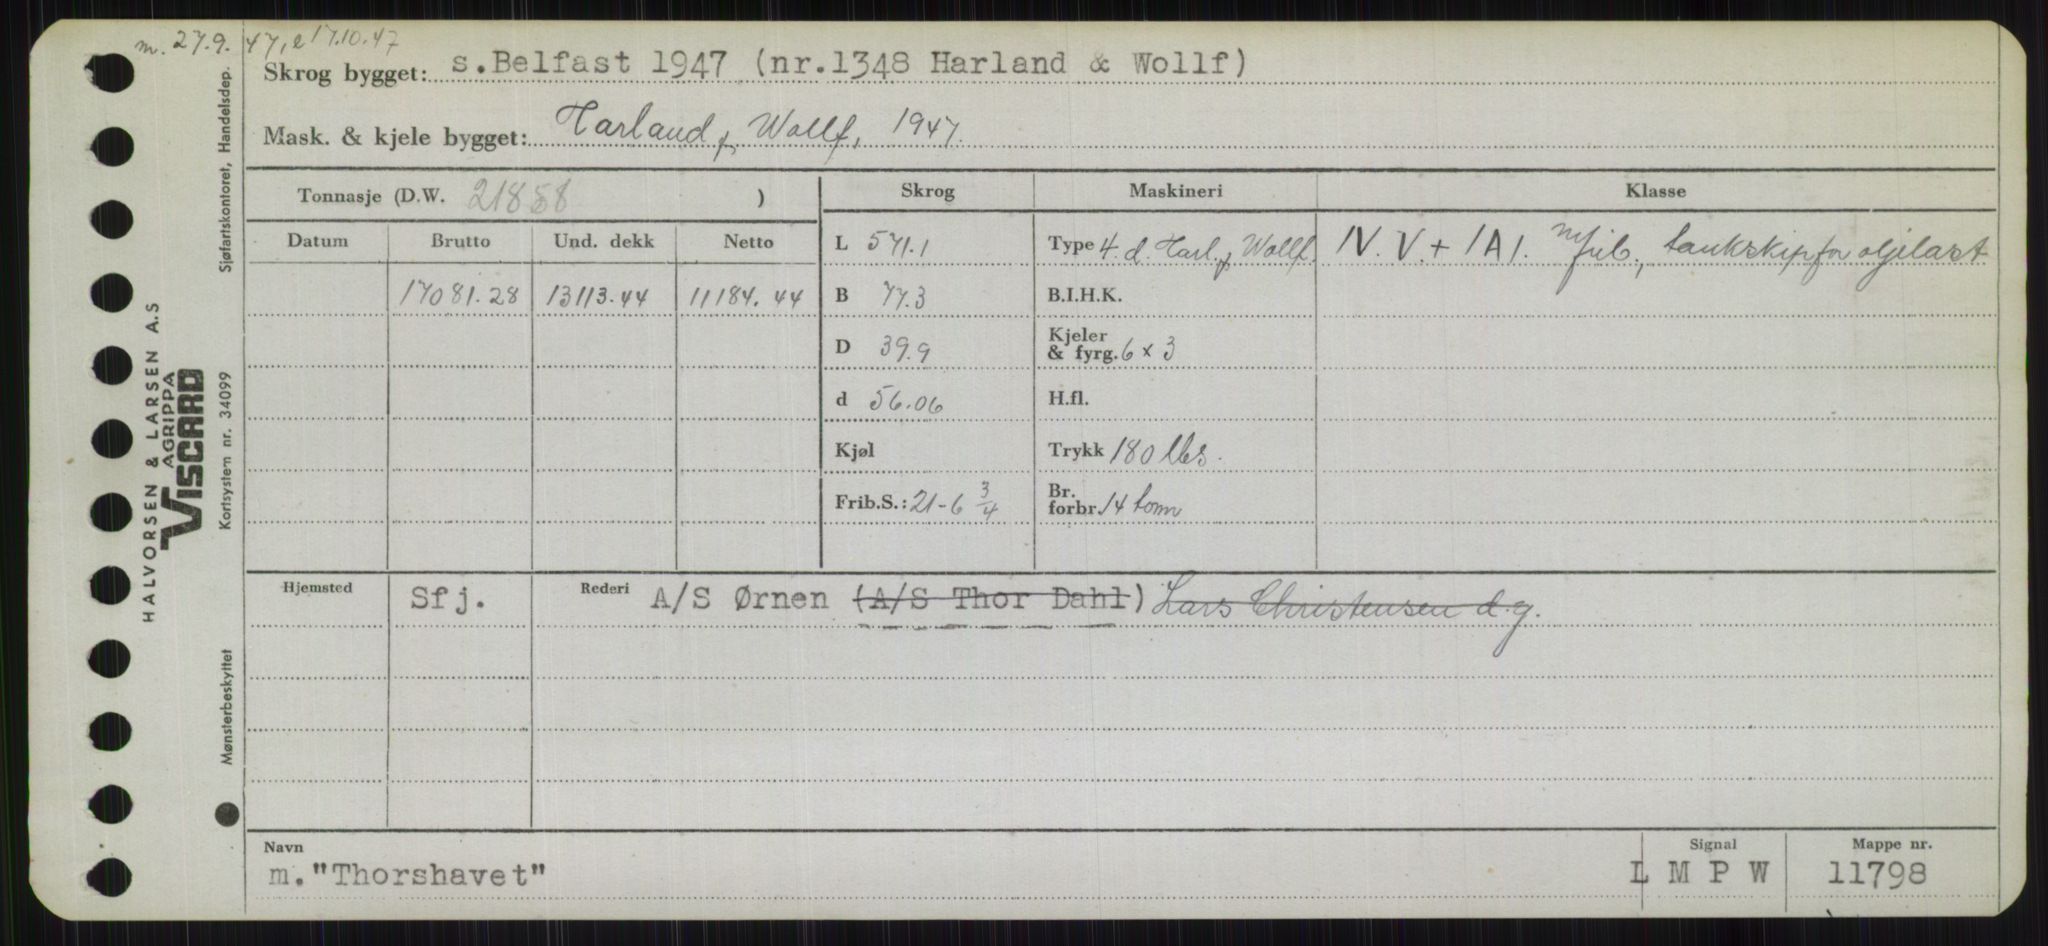 m. 27.9.47, e 17.10.47
Skrog bygget: s.Belfast 1947 (nr.1348 Harland & Wollf)
Mask. & kjele bygget: Harland & Wollf, 1947.
Tonnasje (D.W. )
Skrog Maskineri Klasse
Datum Brutto Und. dekk Netto
L 571.1 Type 4. d. Harl. & Wollf. IV. V. + 1A1. m/frib., tankskip for oljelast
17081.28 13113.44 11184.44 B 77.3 B.I.H.K.
D 39.9 Kjeler & fyrg. 6 x 3
d 56.06 H.fl.
Kjøl Trykk 180 lbs.
Frib.S.: 21-6 3/4 Br. forbr. 14 tonn
Hjemsted Sfj. Rederi A/S Ørnen (A/S Thor Dahl) Lars Christensen d.y.
Navn Signal Mappe nr.
m."Thorshavet" L M P W 11798
HALVORSEN & LARSEN A.S
AGRIPPA
VISCARD
Sjøfartskontoret, Handelsdep.
Kortsystem nr. 34099
Mønsterbeskyttet